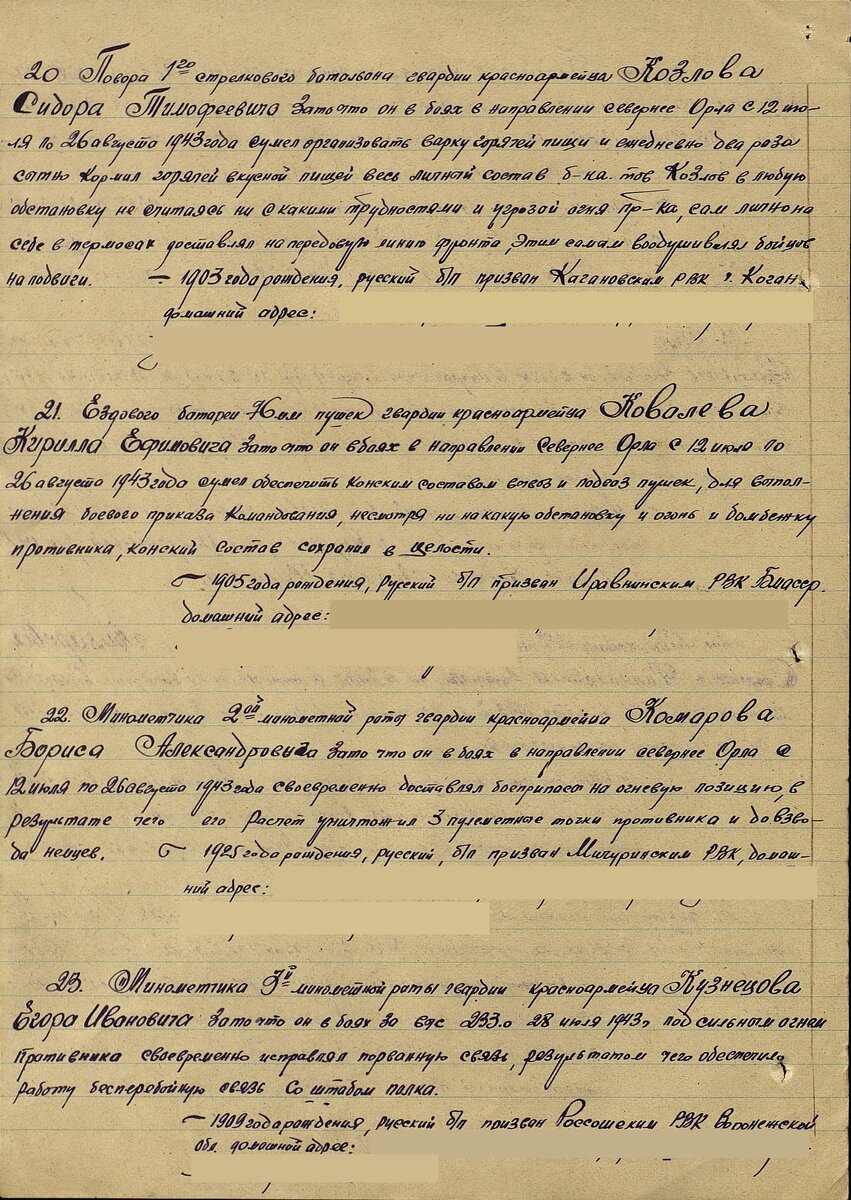 20 Повора 1го стрелкового батольона гвардии красноармейца Козлова
Сидора Тимофеевича зато что он в боях в направлении севернее Орла с 12 ию-
ля по 26 августа 1943 года сумел организовать варку горячей пищи и ежедневно два раза
сытно кормил горячей вкусной пищей весь личный состав б-ка. тов Козлов в любую
обстановку не считаясь ни с какими трудностями и угрозой огня пр-ка, сам лично на
себе в термосах доставлял на передовую линию фронта, этим самам воодушивлял бойцов
на подвиги. — 1903 года рождения, русский б/п призван Кагановским РВК г. Коган.
домашний адрес:
21. Ездового батареи 76 мм пушек гвардии красноармейца Ковалева
Кирилла Ефимовича зато что он в боях в направлении Севернее Орла с 12 июля по
26 августа 1943 года сумел обеспечить конским составом вывоз и подвоз пушек, для выпол-
нения боевого приказа командования, несмотря ни на какую обстановку и огонь и бомбежку
противника, конский состав сохранил в целости.
— 1905 года рождения, русский б/п призван РВК
домашний адрес:
22. Минометчика 2ой минометной роты гвардии красноармейца Комарова
Бориса Александровича зато что он в боях в направлении севернее Орла с
12 июля по 26 августа 1943 года своевременно доставлял боеприпасы на огневую позицию, в
результате чего его расчет уничтожил 3 пулеметные точки противника и до взво-
да немцев. — 1925 года рождения, русский, б/п призван Мичуринским РВК, домаш-
ний адрес:
23. Минометчика 3й минометной роты гвардии красноармейца Кузнецова
Егора Ивановича зато что он в боях за выс 233.0 28 июля 1943г под сильным огнем
противника своевременно исправлял порванную связь, результатом чего обеспечило
работу бесперебойную связь со штабом полка.
— 1909 года рождения, русский б/п призван Россошским РВК Воронежской
обл. домашной адрес: